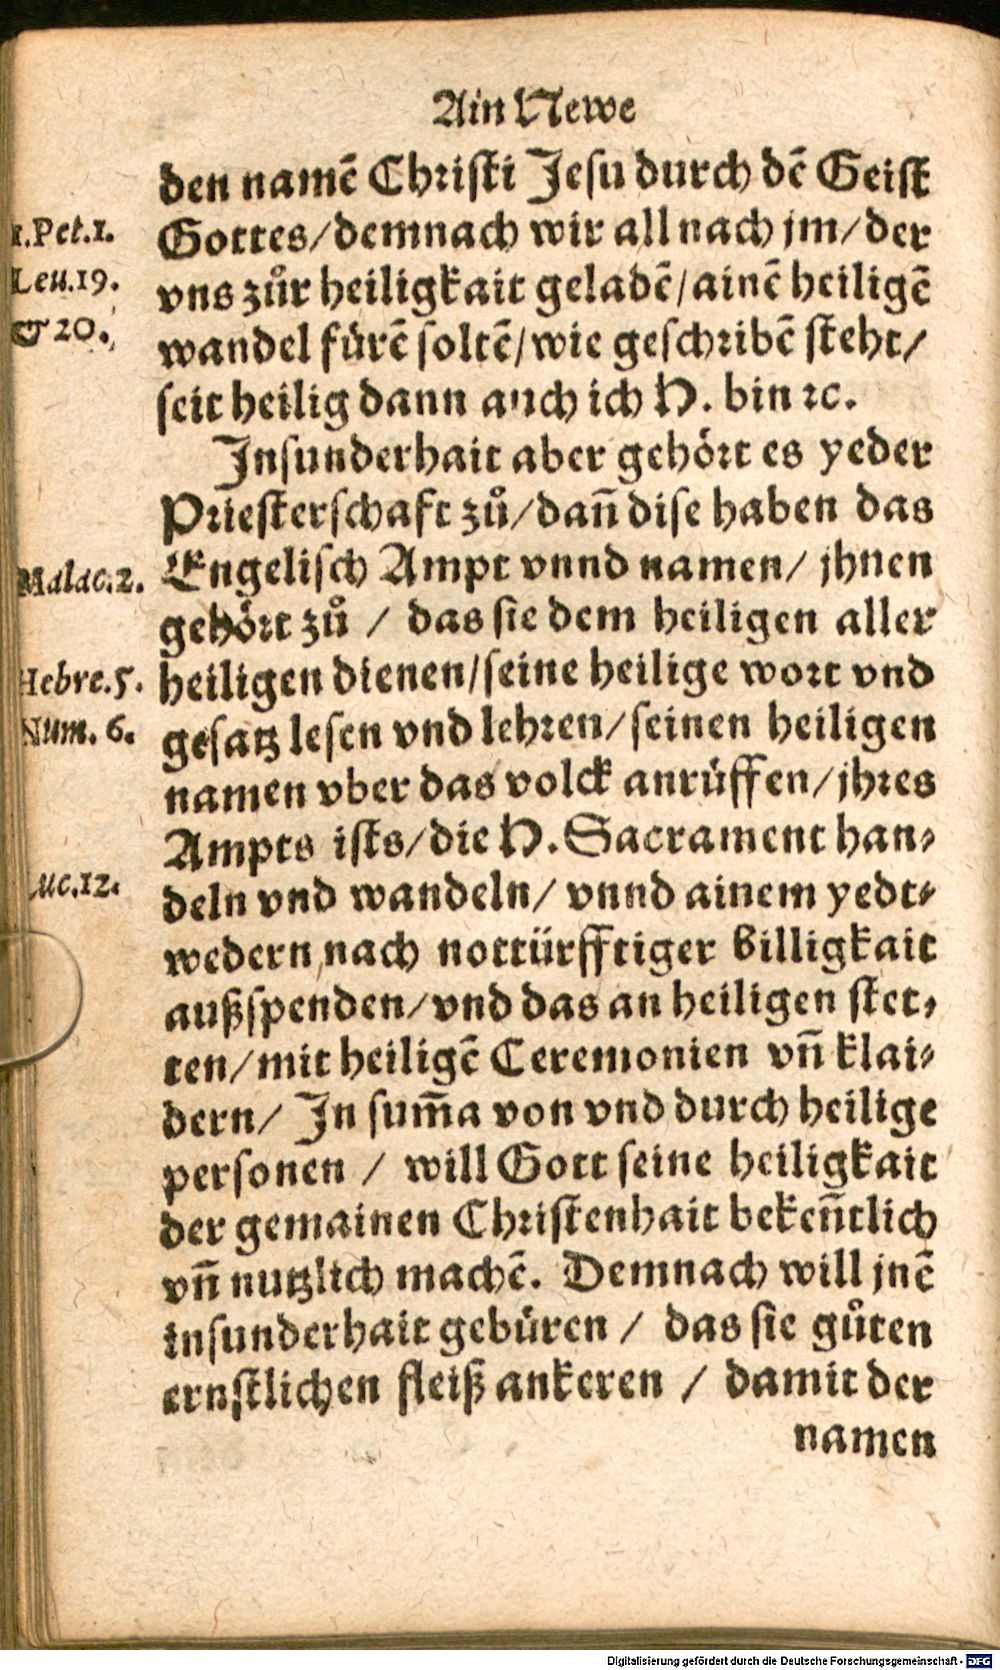 Ain Newe
den namē Christi Jesu durch dē Geist
1.Pet.1.
Gottes/demnach wir all nach jm/der
Leu.19.
vns zůr heiligkait geladē/ainē heiligē
& 20.
wandel fürē soltē/wie geschribē steht/
seit heilig dann auch ich H. bin ꝛc.
Insunderhait aber gehört es yeder
Priesterschaft zů/dañ dise haben das
Malac.2.
Engelisch Ampt vnnd namen/ jhnen
gehört zů / das sie dem heiligen aller
Hebre.5.
heiligen dienen/seine heilige wort vnd
Num. 6.
gesatz lesen vnd lehren/seinen heiligen
namen vber das volck anrüffen/jhres
Ampts ists/die H. Sacrament han-
Luc.12.
deln vnd wandeln/ vnnd ainem yedt-
wedern nach nottürfftiger billigkait
außspenden/vnd das an heiligen stet-
ten/mit heiligē Ceremonien vñ klai-
dern/ In sum̃a von vnd durch heilige
personen / will Gott seine heiligkait
der gemainen Christenhait bekeñtlich
vñ nutzlich machē. Demnach will jnē
insunderhait gebüren / das sie gůten
ernstlichen fleiß ankeren / damit der
namen
Digitalisierung gefördert durch die Deutsche Forschungsgemeinschaft - DFG